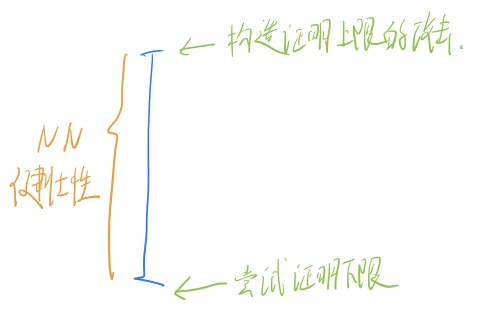 构造证明上限的攻击.
NN
健壮性
尝试证明下限